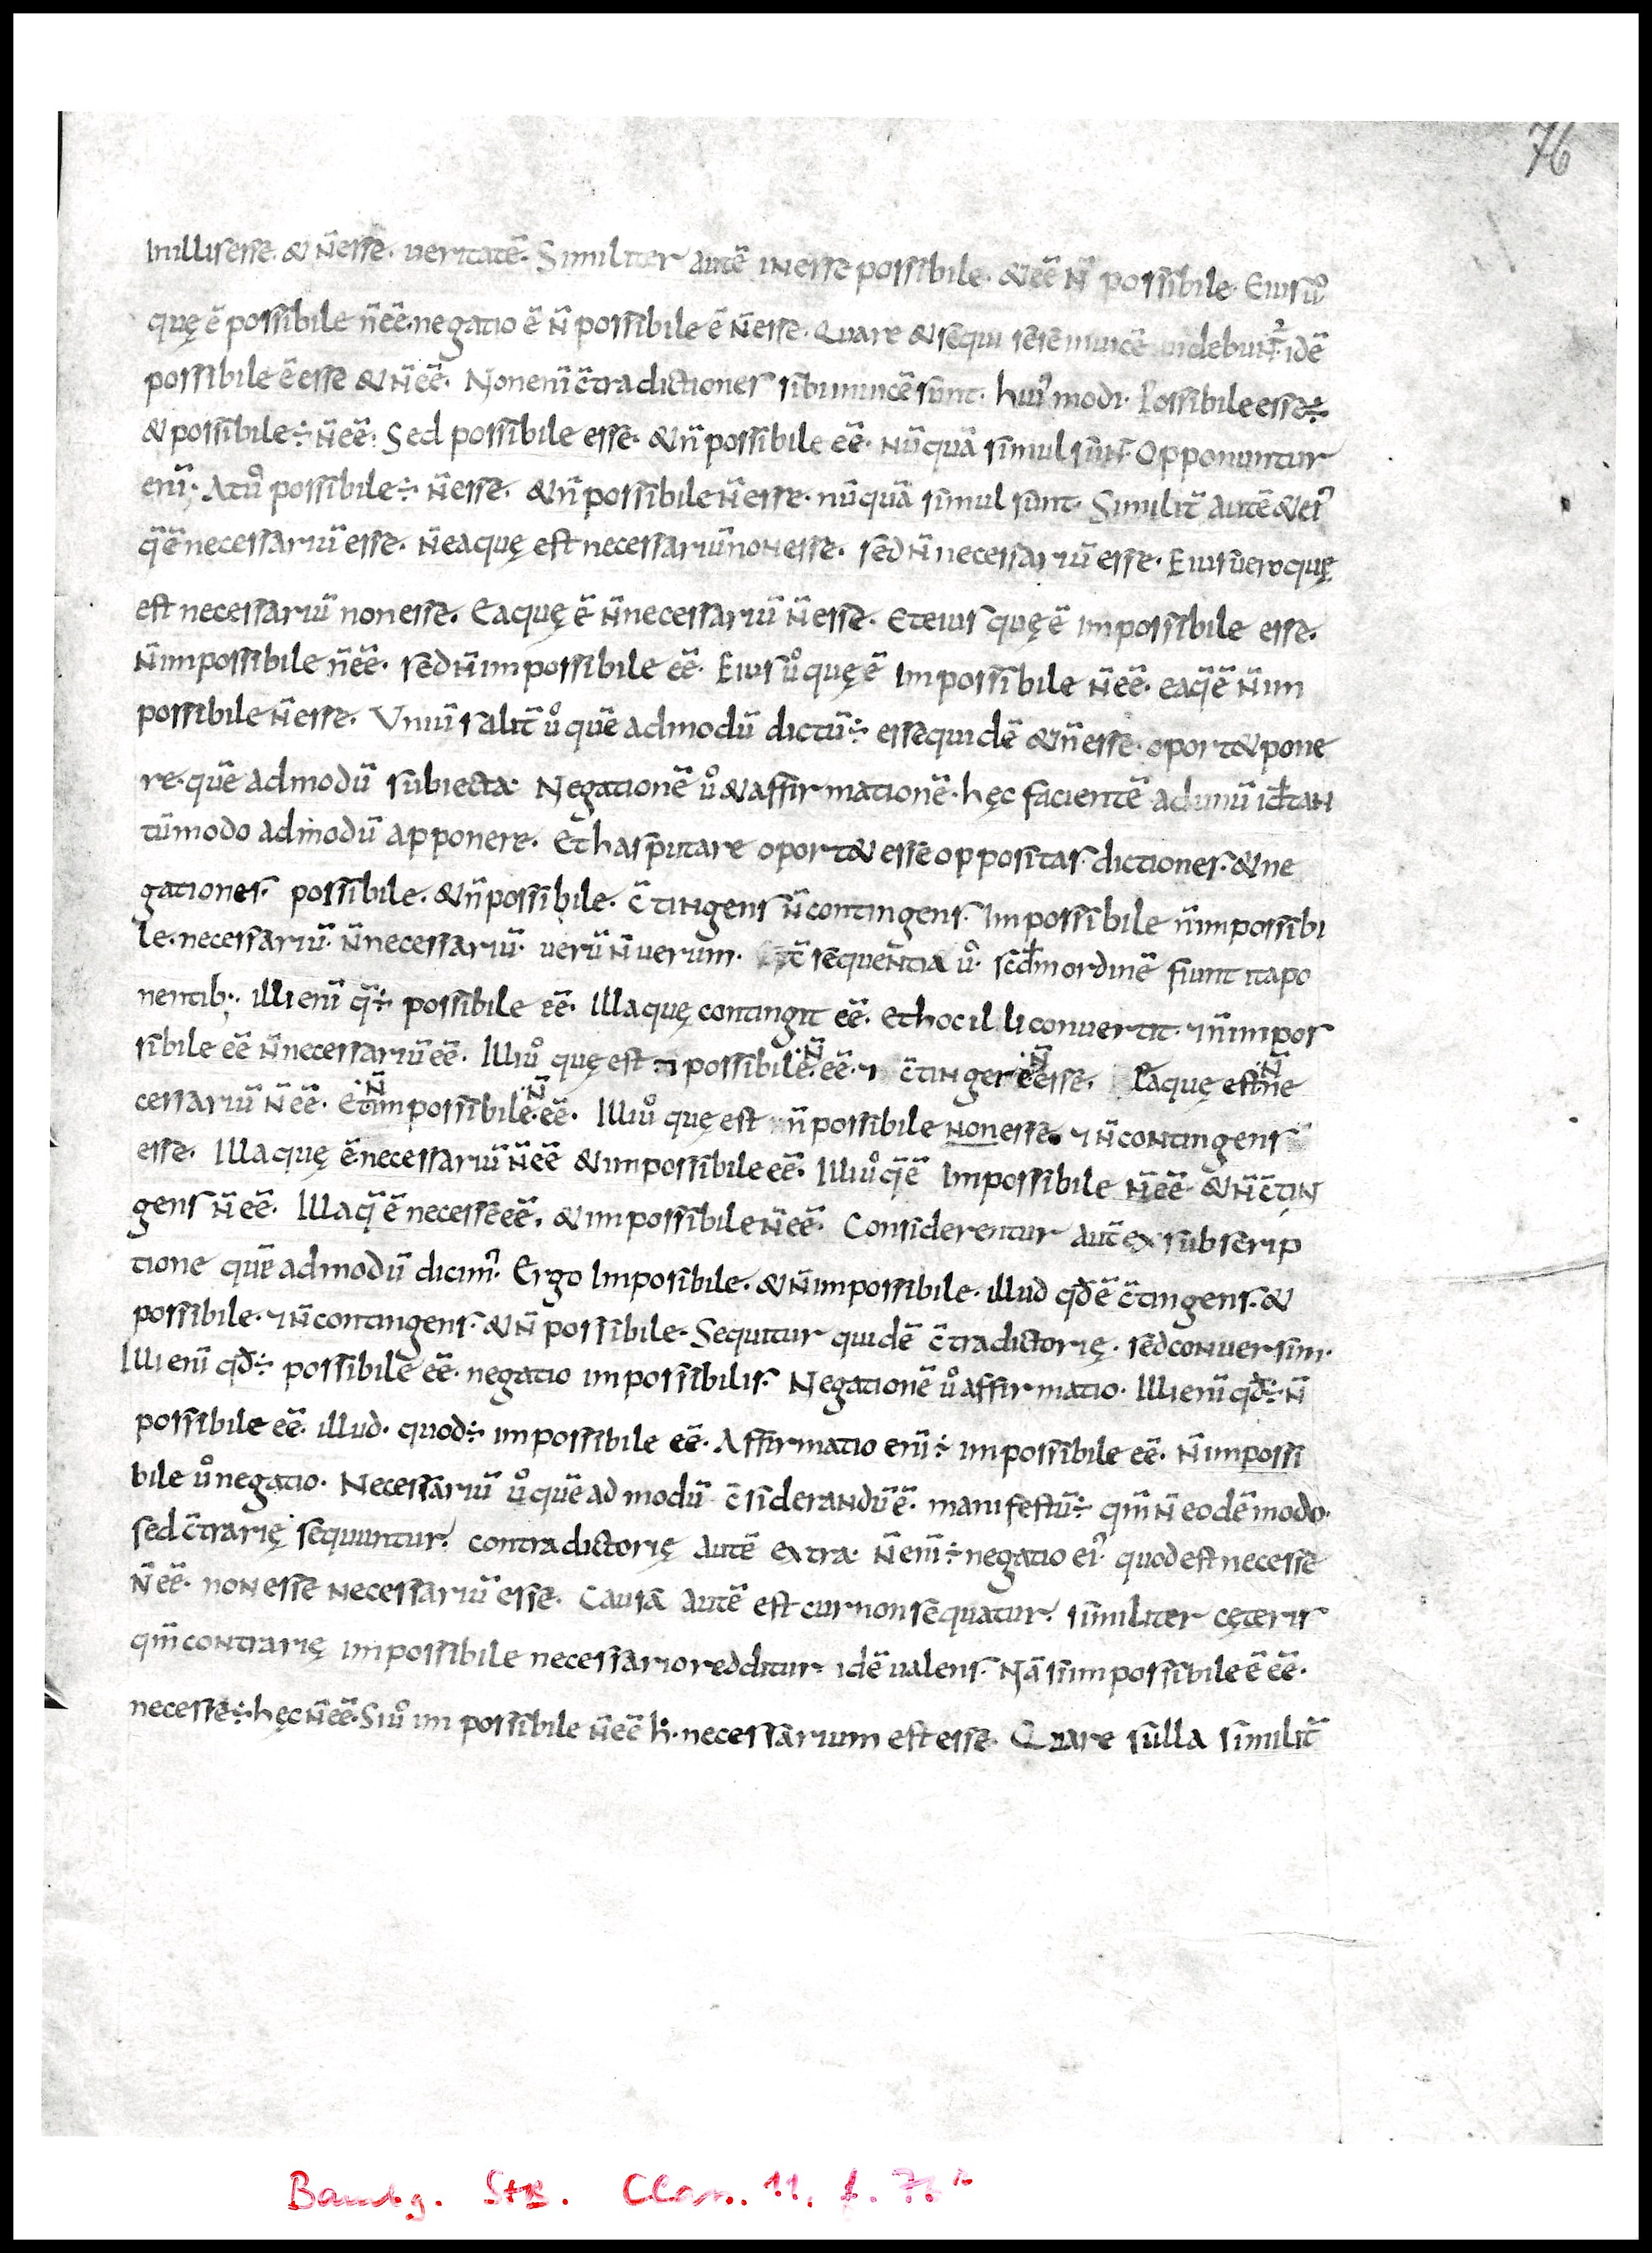 76
In illis esse. & n̄ esse. ueritatē. Similiter autē in esse possibile. & eē n̄ possibile. Eius u°
quę ē possibile n̄ eē. negatio ē n̄ possibile ē n̄ esse. Quare & sequi sese inuicē uidebunt̛. idē
possibile ē esse & n̄ eē. Non enī c̄tradictiones sibi inuicē sunt. hui᾿ modi. Possibile esse ÷
& possibile ÷ n̄ eē. Sed possibile esse. & n̄ possibile eē. nūquā simul sunt. Opponuntur
enī. At u° possibile ÷ n̄ esse. & n̄ possibile n̄ esse. nūquā simul sunt. Similit̄ autē & ei᾿
q̄ ē necessariū esse. n̄ ea quę est necessariū non esse. sed n̄ necessariū esse. Eius uero quę
est necessariū non esse. Ea quę ē n̄ necessariū n̄ esse. Et eius quę ē impossibile esse.
n̄ impossibile n̄ eē. sed n̄ impossibile eē. Eius u° quę ē impossibile n̄ eē. ea q̄ ē n̄ im
possibile n̄ esse. Vniūsalit̄ u° quē admodū dictū ÷ esse quidē & n̄ esse. oport& pone
re. quē admodū subiecta. Negationē u° & affirmationē. hęc facientē ad unū id tan
tūmodo ad modū apponere. Et has putare oport& esse oppositas dictiones. & ne
gationes. possibile. & n̄ possibile. c̄tingens n̄ contingens. Impossibile n̄ impossibi
le. necessariū. n̄ necessariū. uerū n̄ uerum. c̄sequentia u°. scdm ordinē fiunt ita po
nentib;. illi enī q̄ ÷ possibile eē. Illa quę contingit eē. et hoc illi conuertit. ⁊ n̄ impos
sibile eē n̄ necessariū eē. Illi u° quę est possibile .n̄. eē. ⁊ c̄tingere .n̄ esse. Ea quę est n̄ ne
cessariū n̄ eē. Et n̄ impossibile .n̄. eē. Illi u° quę est n̄ possibile non esse. ⁊ n̄ contingens
esse. Illa quę ē necessariū n̄ eē & impossibile eē. Illi u° q̄ ē impossibile n̄ eē. & n̄ c̄tin
gens n̄ eē. Illa q̄ ē necesse eē. & impossibile n̄ eē. Considerentur aut̄ ex subscrip
tione quē admodū dicim᾿. Ergo Imposibile. & n̄ impossibile. illud qđ ē c̄tingens. &
possibile. ⁊ n̄ contingens. & n̄ possibile. Sequitur quidē c̄tradictorię. sed conuersim.
Illi enī qđ ÷ possibile eē. negatio impossibilis. Negationē u° affirmatio. Illi enī qđ ÷ n̄
possibile eē. illud. quod ÷ impossibile eē. Affirmatio enī ÷ impossibile eē. n̄ impossi
bile u° negatio. Necessariū u° quē ad modū c̄siderandū ē. manifestū ÷ qm̄ n̄ eodē modo.
sed c̄trarię sequuntur. contradictorię autē extra. n̄ enī ÷ negatio ei᾿. quod est necesse
n̄ eē. non esse necessariū esse. Causa autē est cur non sequatur. similiter cęteris
qm̄ contrarię impossibile necessario redditur idē ualens. Nā si impossibile ē eē.
necesse ÷ hęc n̄ eē. Si u° impossibile n̄ eē h̛. necessarium est esse. Quare si illa similit̄
Bamberg. StB. Class. 11, f. 76r